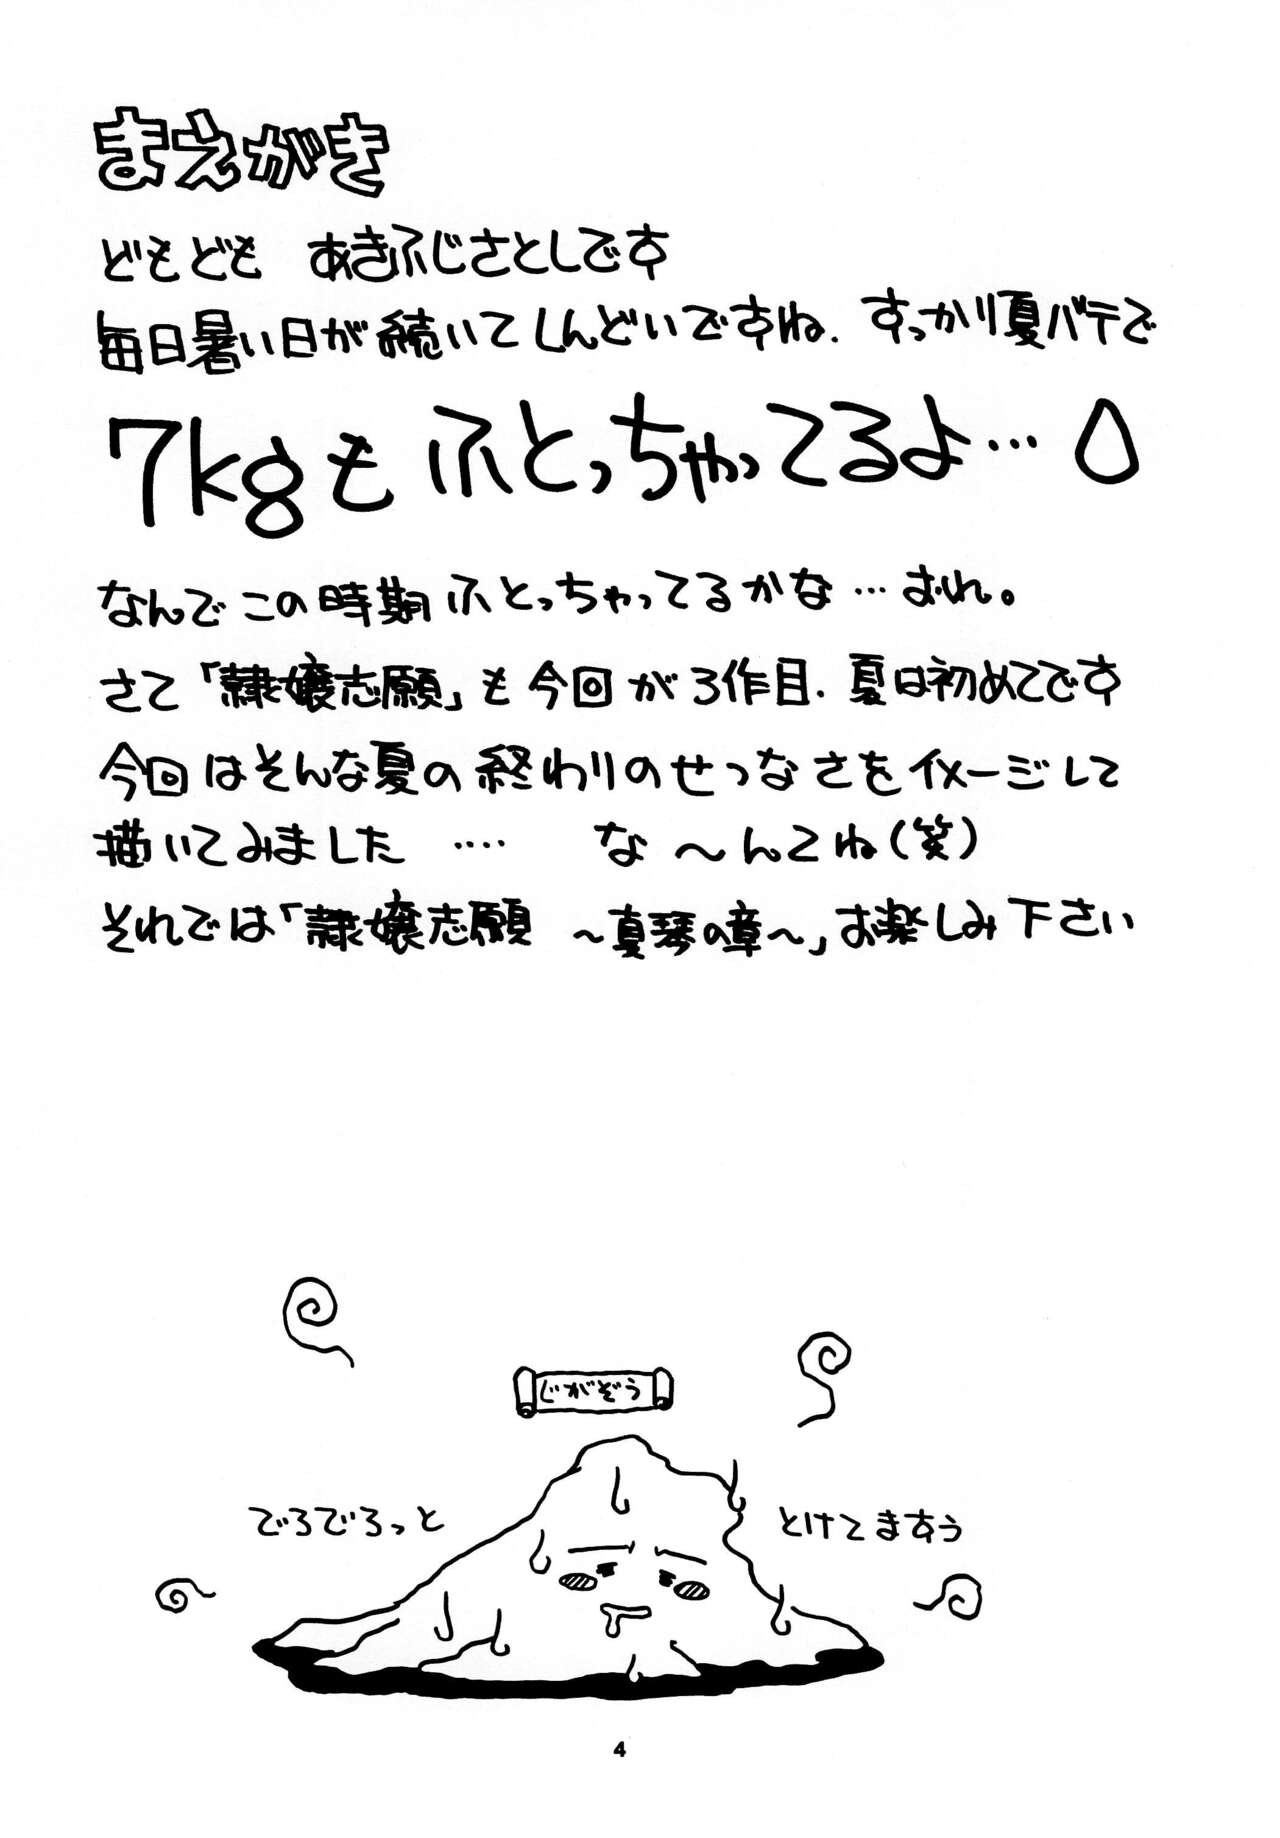 まえがき
どもども あきふじさとしです
毎日暑い日が続いてしんどいですね、すっかり夏バテで
7kgもふとっちゃってるよ…
なんでこの時期ふとっちゃってるかな…おれ。
さて「隷嬢志願」も今回が3作目、夏は初めてです
今回はそんな夏の終わりのせつなさをイメージして
描いてみました ‥‥ な〜んてね(笑)
それでは「隷嬢志願 〜真琴の章〜」お楽しみ下さい
じがぞう
でろでろっと とけてますぅ
4